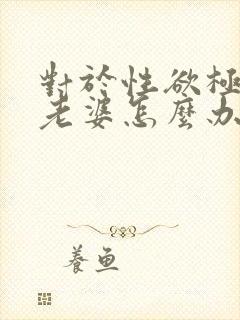 對於性欲極
老婆怎麼办
養魚